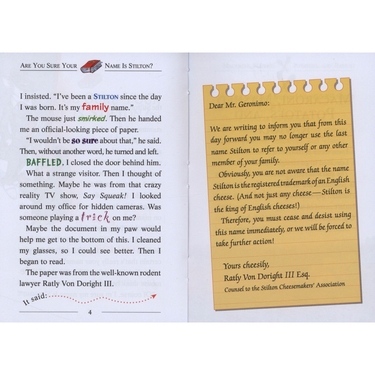 ARE YOU SURE YOUR NAME IS STILTON?
I insisted. "I've been a STILTON since the day
I was born. It's my family name."
The mouse just smirked. Then he handed
me an official-looking piece of paper.
"I wouldn't be so sure about that," he said.
Then, without another word, he turned and left.
BAFFLED, I closed the door behind him.
What a strange visitor. Then I thought of
something. Maybe he was from that crazy
reality TV show, Say Squeak! I looked
around my office for hidden cameras. Was
someone playing a trick on me?
Maybe the document in my paw would
help me get to the bottom of this. I cleaned
my glasses, so I could see better. Then I
began to read.
The paper was from the well-known rodent
lawyer Ratly Von Doright III.
It said:
4
Dear Mr. Geronimo:
We are writing to inform you that from this
day forward you may no longer use the last
name Stilton to refer to yourself or any other
member of your family.
Obviously, you are not aware that the name
Stilton is the registered trademark of an English
cheese. (And not just any cheese—Stilton is
the king of English cheeses!)
Therefore, you must cease and desist using
this name immediately, or we will be forced to
take further action!
Yours cheesily,
Ratly Von Doright III Esq.
Counsel to the Stilton Cheesemakers' Association